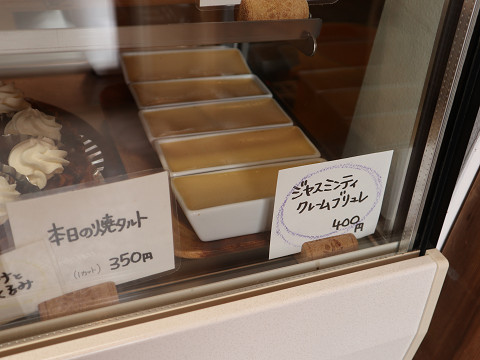 本日の焼タルト
(1カット) 350円
ジャスミンティ
クレームブリュレ
400円
くるみ